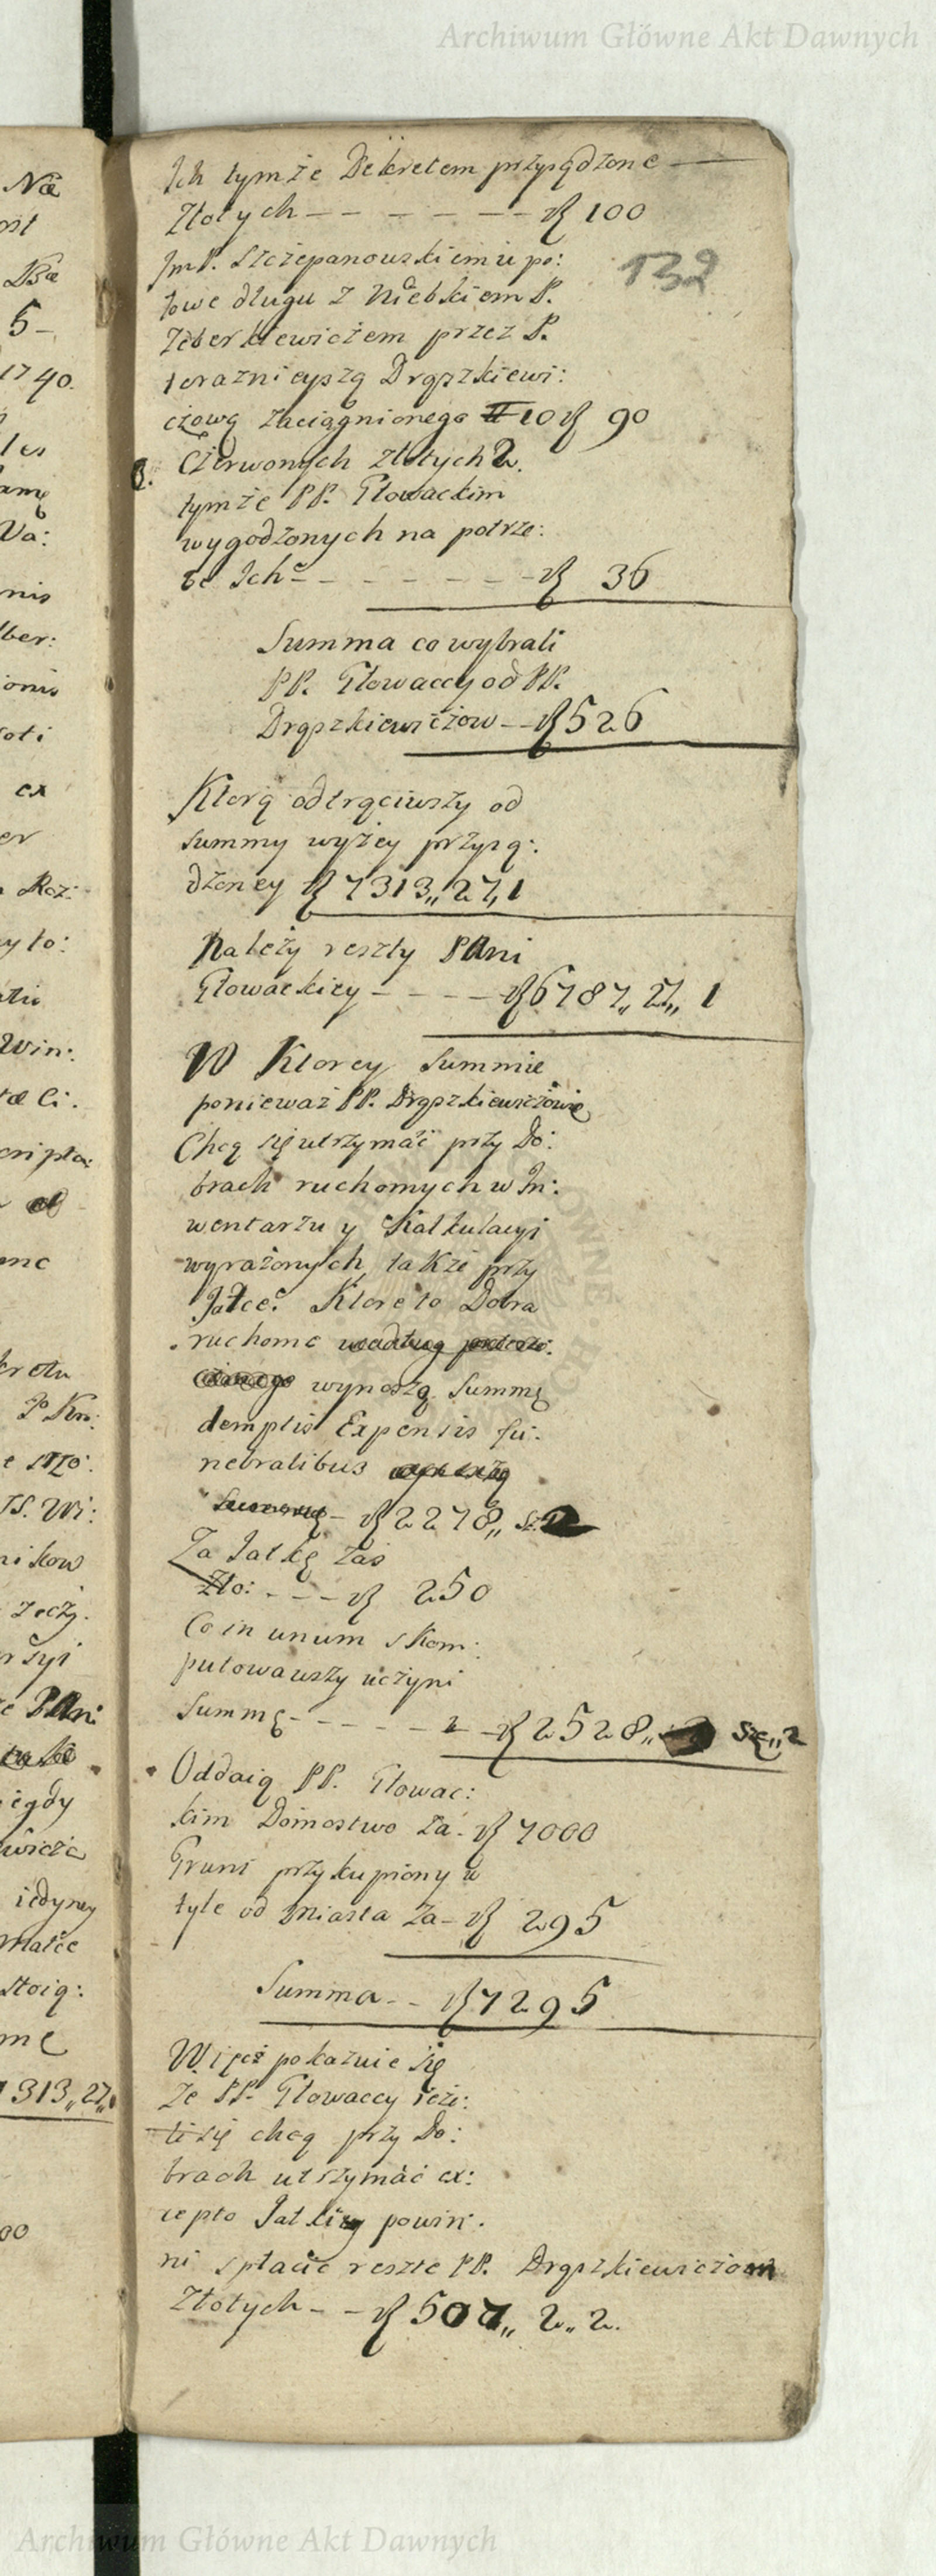 Archiwum Główne Akt Dawnych
Ich tymże Dekretem przysądzone
Złotych - - - - - - zł 100
132
JmP. Szczepanowskiemu po:
łowę długu z Niebkiem P.
Zeberkiewiczem przez P.
teraznieyszą Drąszkiewi:
czową zaciągnionego # 10 zł 90
8. Czerwonych złotych 2.
tymże PP. Głowackim
wygodzonych na potrze:
be Ich - - - - - - zł 36
Summa co wybrali
PP. Głowaccy od PP.
Drąszkiewiczow - - zł 526
Ktorą odtrąciwszy od
summy wyżey przysą:
dzoney zł 7313,, 27,, 1
Należy reszty PAni
Głowackiey - - - - zł 6787,, 27,, 1
W Ktorey Summie
ponieważ PP. Drąszkiewiczowie
Chcą się utrzymać przy Do:
brach ruchomych w In:
wentarzu y Kalkulacyi
wyrażonych, także przy
Jatce. Ktore to Dobra
ruchome
wynoszą Summę
demptis Expensis fu:
nebralibus
Summę - zł 2278,,
Za Jatkę zas
Zło: - - - zł 250
Co in unum skom:
putowawszy uczyni
Summę - - - - - - zł 2528,, sz,, 2
Oddaią PP. Głowac:
kim Domostwo za - zł 7000
Grunt przykupiony w
tyle od miasta za - zł 295
Summa - - zł 7295
Więc pokazuie się
że PP. Głowaccy ieże:
li się chcą przy Do:
brach utrzymać ex:
cepto Jatkiey powin:
ni spłacić reszte PP. Drąszkiewiczom
Złotych - - zł 507,, 2,, 2.
Na
Ba
5 -
1740.
Va:
nis
ber:
ionis
ex
er
Roz:
y to:
Win:
P Kn:
zeczy.
PAni
iedyney
matce
stoią:
me
7313,, 27,,
00
Archiwum Główne Akt Dawnych